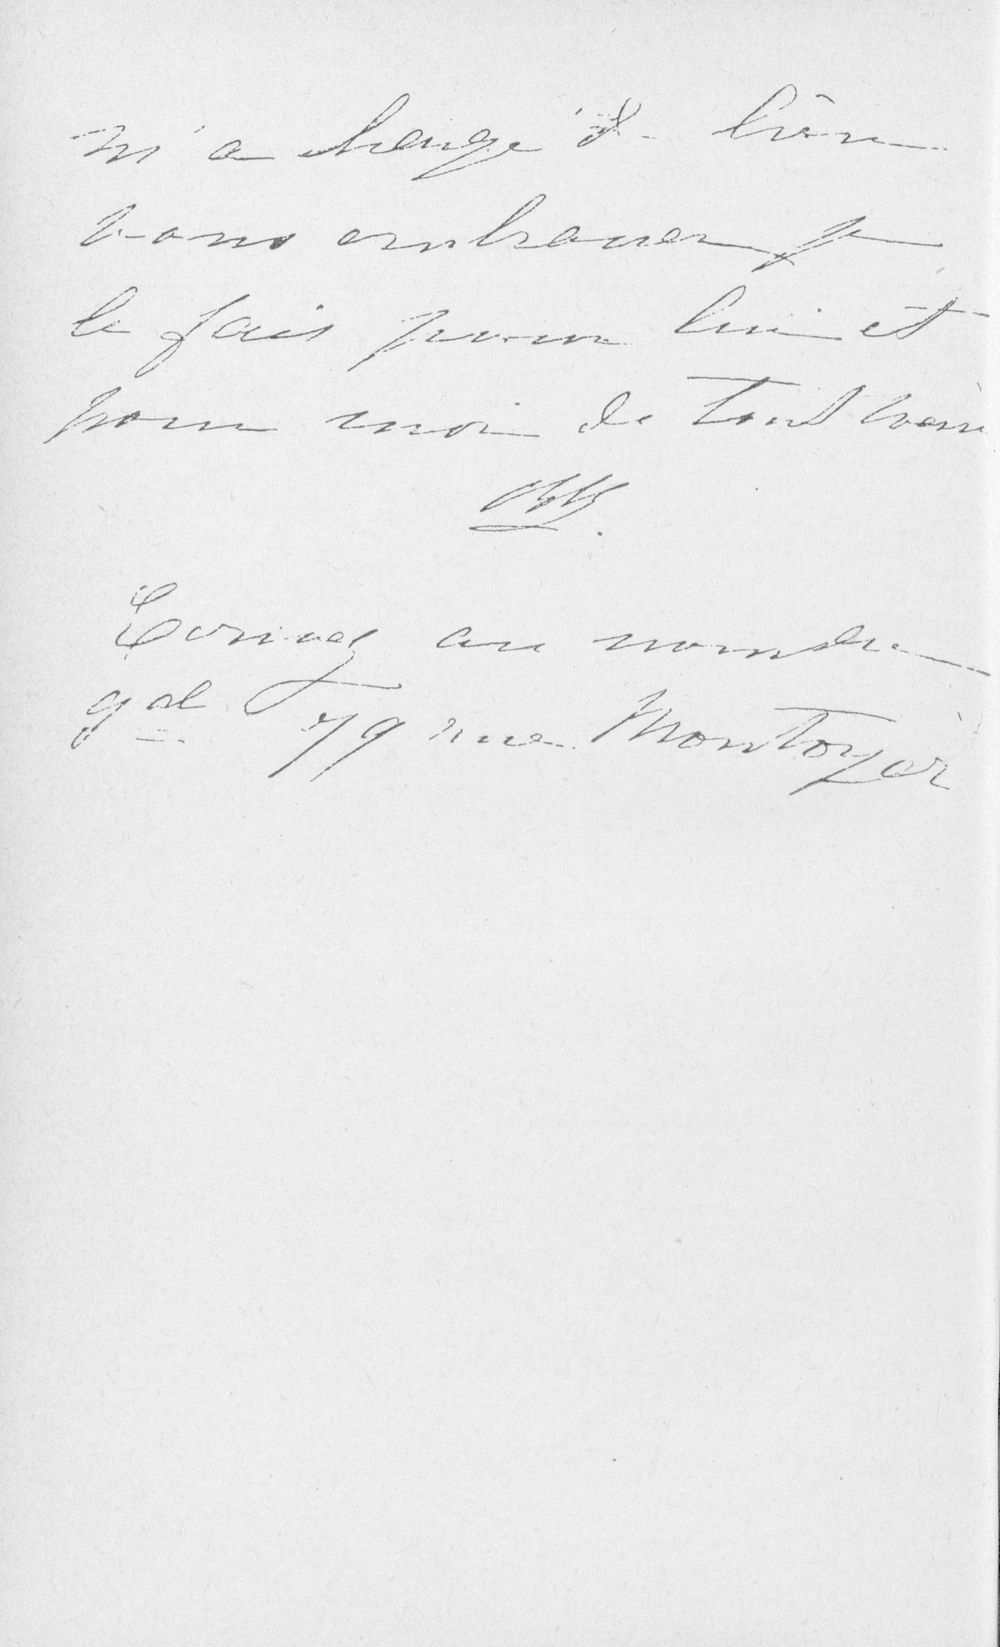 m'a chargé de bien
vous embrasser, je
le fais pour lui et
pour moi de tout cœur
Ecrivez au nom du
gal 79 rue Montoyer